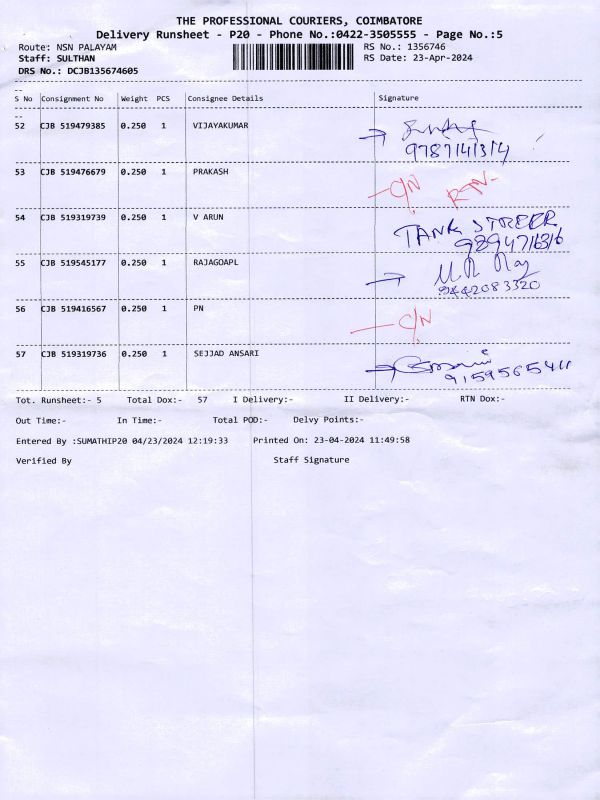 THE PROFESSIONAL COURIERS, COIMBATORE
Delivery Runsheet - P20 - Phone No.:0422-3505555 - Page No.:5
Route: NSN PALAYAM RS No.: 1356746
Staff: SULTHAN RS Date: 23-Apr-2024
DRS No.: DCJB135674605
S No Consignment No Weight PCS Consignee Details Signature
52 CJB 519479385 0.250 1 VIJAYAKUMAR
9787141314
53 CJB 519476679 0.250 1 PRAKASH C/N RTN
54 CJB 519319739 0.250 1 V ARUN TANK STREER
9894716316
55 CJB 519545177 0.250 1 RAJAGOAPL
9442083320
56 CJB 519416567 0.250 1 PN C/N
57 CJB 519319736 0.250 1 SEJJAD ANSARI
9159565411
Tot. Runsheet:- 5 Total Dox:- 57 I Delivery:- II Delivery:- RTN Dox:-
Out Time:- In Time:- Total POD:- Delvy Points:-
Entered By :SUMATHIP20 04/23/2024 12:19:33 Printed On: 23-04-2024 11:49:58
Verified By Staff Signature